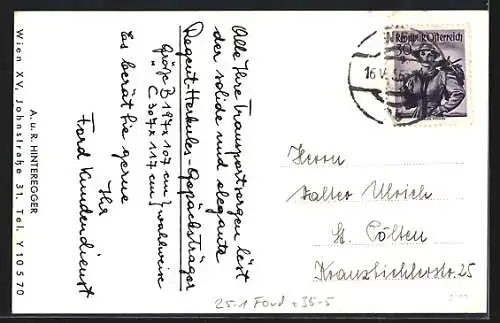 Alle Ihre Transportsorgen löst
der solide und elegante
Regent-Herkules-Gepäcksträger
Größe B 197 x 107 cm } wahlweise
" C 307 x 117 cm
Es berät Sie gerne
Ihr
Ford Kundendienst
A. u. R. HINTEREGGER
Wien XV, Johnstraße 31, Tel. Y 10 5 70
Republik Österreich
16. V.
Herrn
Walter Ulrich
St. Pölten
Kranzbichlerstr. 25
25-1 Ford + 35-5